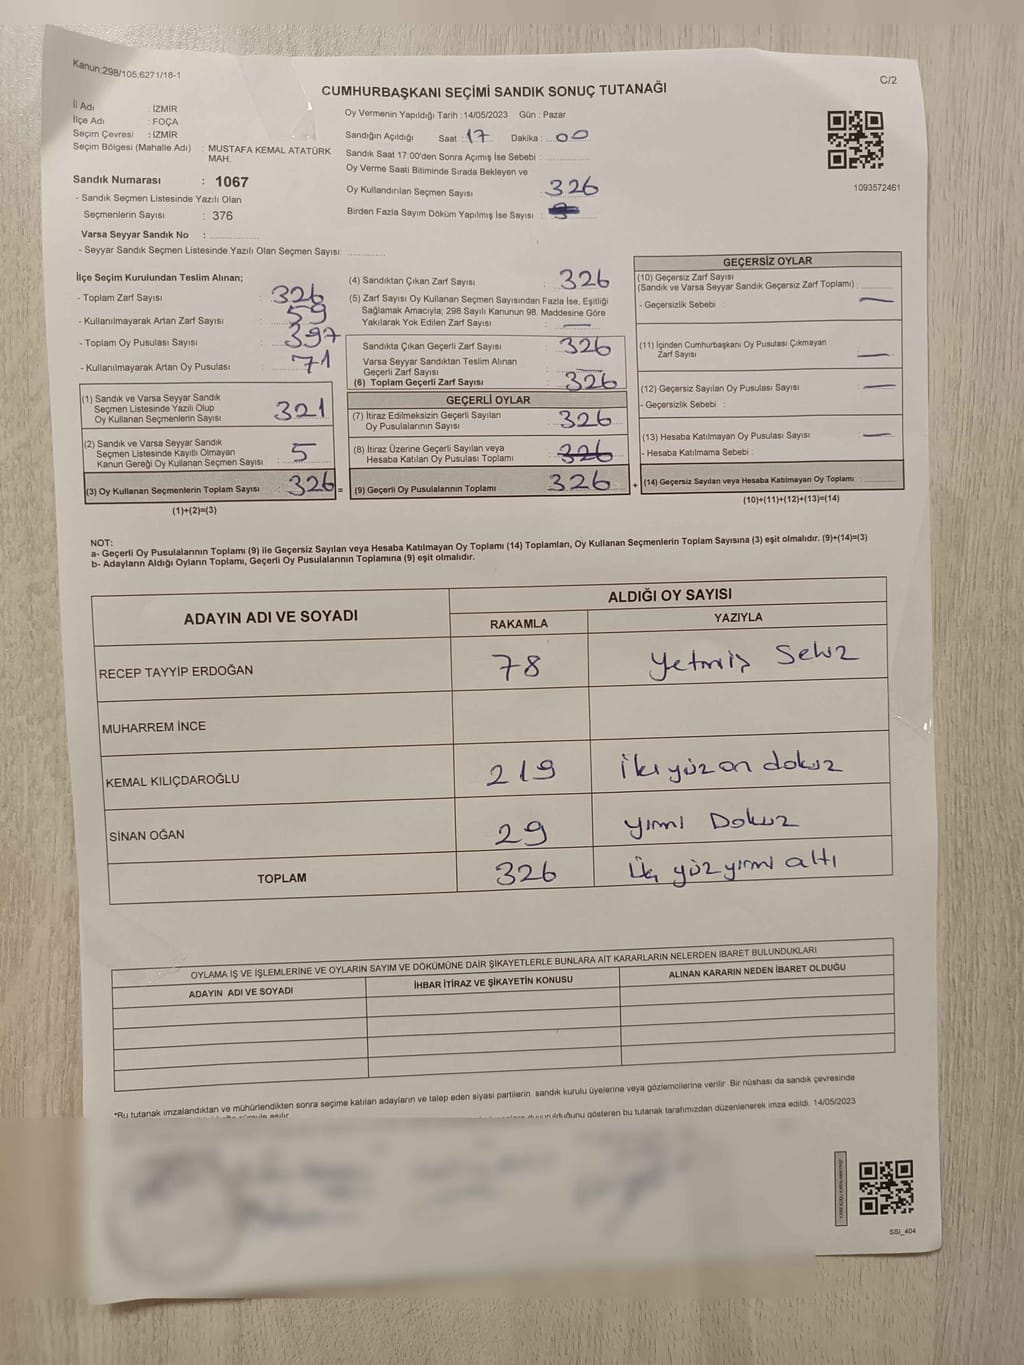 Kanun;298/105;6271/18-1
C/2
CUMHURBAŞKANI SEÇİMİ SANDIK SONUÇ TUTANAĞI
İl Adı : İZMİR
İlçe Adı : FOÇA
Seçim Çevresi : İZMİR
Seçim Bölgesi (Mahalle Adı) : MUSTAFA KEMAL ATATÜRK MAH.
Sandık Numarası : 1067
- Sandık Seçmen Listesinde Yazılı Olan
Seçmenlerin Sayısı : 376
Varsa Seyyar Sandık No :
- Seyyar Sandık Seçmen Listesinde Yazılı Olan Seçmen Sayısı:
Oy Vermenin Yapıldığı Tarih : 14/05/2023 Gün : Pazar
Sandığın Açıldığı Saat : 17 Dakika : 00
Sandık Saat 17:00'den Sonra Açımış İse Sebebi :
Oy Verme Saati Bitiminde Sırada Bekleyen ve
Oy Kullandırılan Seçmen Sayısı : 326
Birden Fazla Sayım Döküm Yapılmış İse Sayısı :
1093572461
İlçe Seçim Kurulundan Teslim Alınan;
- Toplam Zarf Sayısı : 326
- Kullanılmayarak Artan Zarf Sayısı : 59
- Toplam Oy Pusulası Sayısı : 397
- Kullanılmayarak Artan Oy Pusulası : 71
(1) Sandık ve Varsa Seyyar Sandık
Seçmen Listesinde Yazılı Olup
Oy Kullanan Seçmenlerin Sayısı : 321
(2) Sandık ve Varsa Seyyar Sandık
Seçmen Listesinde Kayıtlı Olmayan
Kanun Gereği Oy Kullanan Seçmen Sayısı : 5
(3) Oy Kullanan Seçmenlerin Toplam Sayısı : 326 =
(1)+(2)=(3)
(4) Sandıktan Çıkan Zarf Sayısı : 326
(5) Zarf Sayısı Oy Kullanan Seçmen Sayısından Fazla İse, Eşitliği
Sağlamak Amacıyla; 298 Sayılı Kanunun 98. Maddesine Göre
Yakılarak Yok Edilen Zarf Sayısı : —
Sandıkta Çıkan Geçerli Zarf Sayısı : 326
Varsa Seyyar Sandıktan Teslim Alınan
Geçerli Zarf Sayısı : —
(6) Toplam Geçerli Zarf Sayısı : 326
GEÇERLİ OYLAR
(7) İtiraz Edilmeksizin Geçerli Sayılan
Oy Pusulalarının Sayısı : 326
(8) İtiraz Üzerine Geçerli Sayılan veya
Hesaba Katılan Oy Pusulası Toplamı : 326
(9) Geçerli Oy Pusulalarının Toplamı : 326 +
GEÇERSİZ OYLAR
(10) Geçersiz Zarf Sayısı
(Sandık ve Varsa Seyyar Sandık Geçersiz Zarf Toplamı) :
- Geçersizlik Sebebi : —
(11) İçinden Cumhurbaşkanı Oy Pusulası Çıkmayan
Zarf Sayısı : —
(12) Geçersiz Sayılan Oy Pusulası Sayısı : —
- Geçersizlik Sebebi :
(13) Hesaba Katılmayan Oy Pusulası Sayısı : —
- Hesaba Katılmama Sebebi :
(14) Geçersiz Sayılan veya Hesaba Katılmayan Oy Toplamı :
(10)+(11)+(12)+(13)=(14)
NOT:
a- Geçerli Oy Pusulalarının Toplamı (9) ile Geçersiz Sayılan veya Hesaba Katılmayan Oy Toplamı (14) Toplamları, Oy Kullanan Seçmenlerin Toplam Sayısına (3) eşit olmalıdır. (9)+(14)=(3)
b- Adayların Aldığı Oyların Toplamı, Geçerli Oy Pusulalarının Toplamına (9) eşit olmalıdır.
ADAYIN ADI VE SOYADI
ALDIĞI OY SAYISI
RAKAMLA YAZIYLA
RECEP TAYYİP ERDOĞAN 78 Yetmiş Sekiz
MUHARREM İNCE
KEMAL KILIÇDAROĞLU 219 İki yüz on dokuz
SİNAN OĞAN 29 yirmi Dokuz
TOPLAM 326 Üç yüz yirmi altı
OYLAMA İŞ VE İŞLEMLERİNE VE OYLARIN SAYIM VE DÖKÜMÜNE DAİR ŞİKAYETLERLE BUNLARA AİT KARARLARIN NELERDEN İBARET BULUNDUKLARI
ADAYIN ADI VE SOYADI İHBAR İTİRAZ VE ŞİKAYETİN KONUSU ALINAN KARARIN NEDEN İBARET OLDUĞU
*Bu tutanak imzalandıktan ve mühürlendikten sonra seçime katılan adayların ve talep eden siyasi partilerin sandık kurulu üyelerine veya gözlemcilerine verilir. Bir nüshası da sandık çevresinde
duyurulduğunu gösteren bu tutanak tarafımızdan düzenlenerek imza edildi. 14/05/2023
SSİ_404